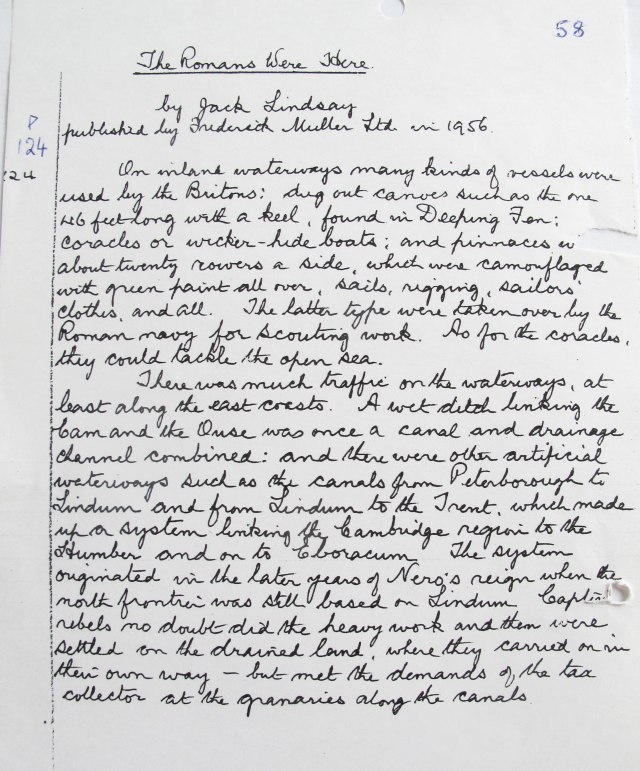 58
The Romans Were Here.
by Jack Lindsay
published by Frederick Muller Ltd. in 1956.
P
124
124
On inland waterways many kinds of vessels were
used by the Britons: dug out canoes such as the one
46 feet long with a keel, found in Deeping Fen:
coracles or wicker-hide boats; and pinnaces w
about twenty rowers a side, which were camouflaged
with green paint all over, sails, rigging, sailors'
clothes, and all. The latter type were taken over by the
Roman navy for scouting work. As for the coracles,
they could tackle the open sea.
There was much traffic on the waterways, at
least along the east coasts. A wet ditch linking the
Cam and the Ouse was once a canal and drainage
channel combined: and there were other artificial
waterways such as the canals from Peterborough to
Lindum and from Lindum to the Trent, which made
up a system linking the Cambridge region to the
Humber and on to Eboracum The system
originated in the later years of Nero's reign when the
north frontier was still based on Lindum
rebels no doubt did the heavy work and then were
settled on the drained land, where they carried on in
their own way - but met the demands of the tax
collector at the granaries along the canals.